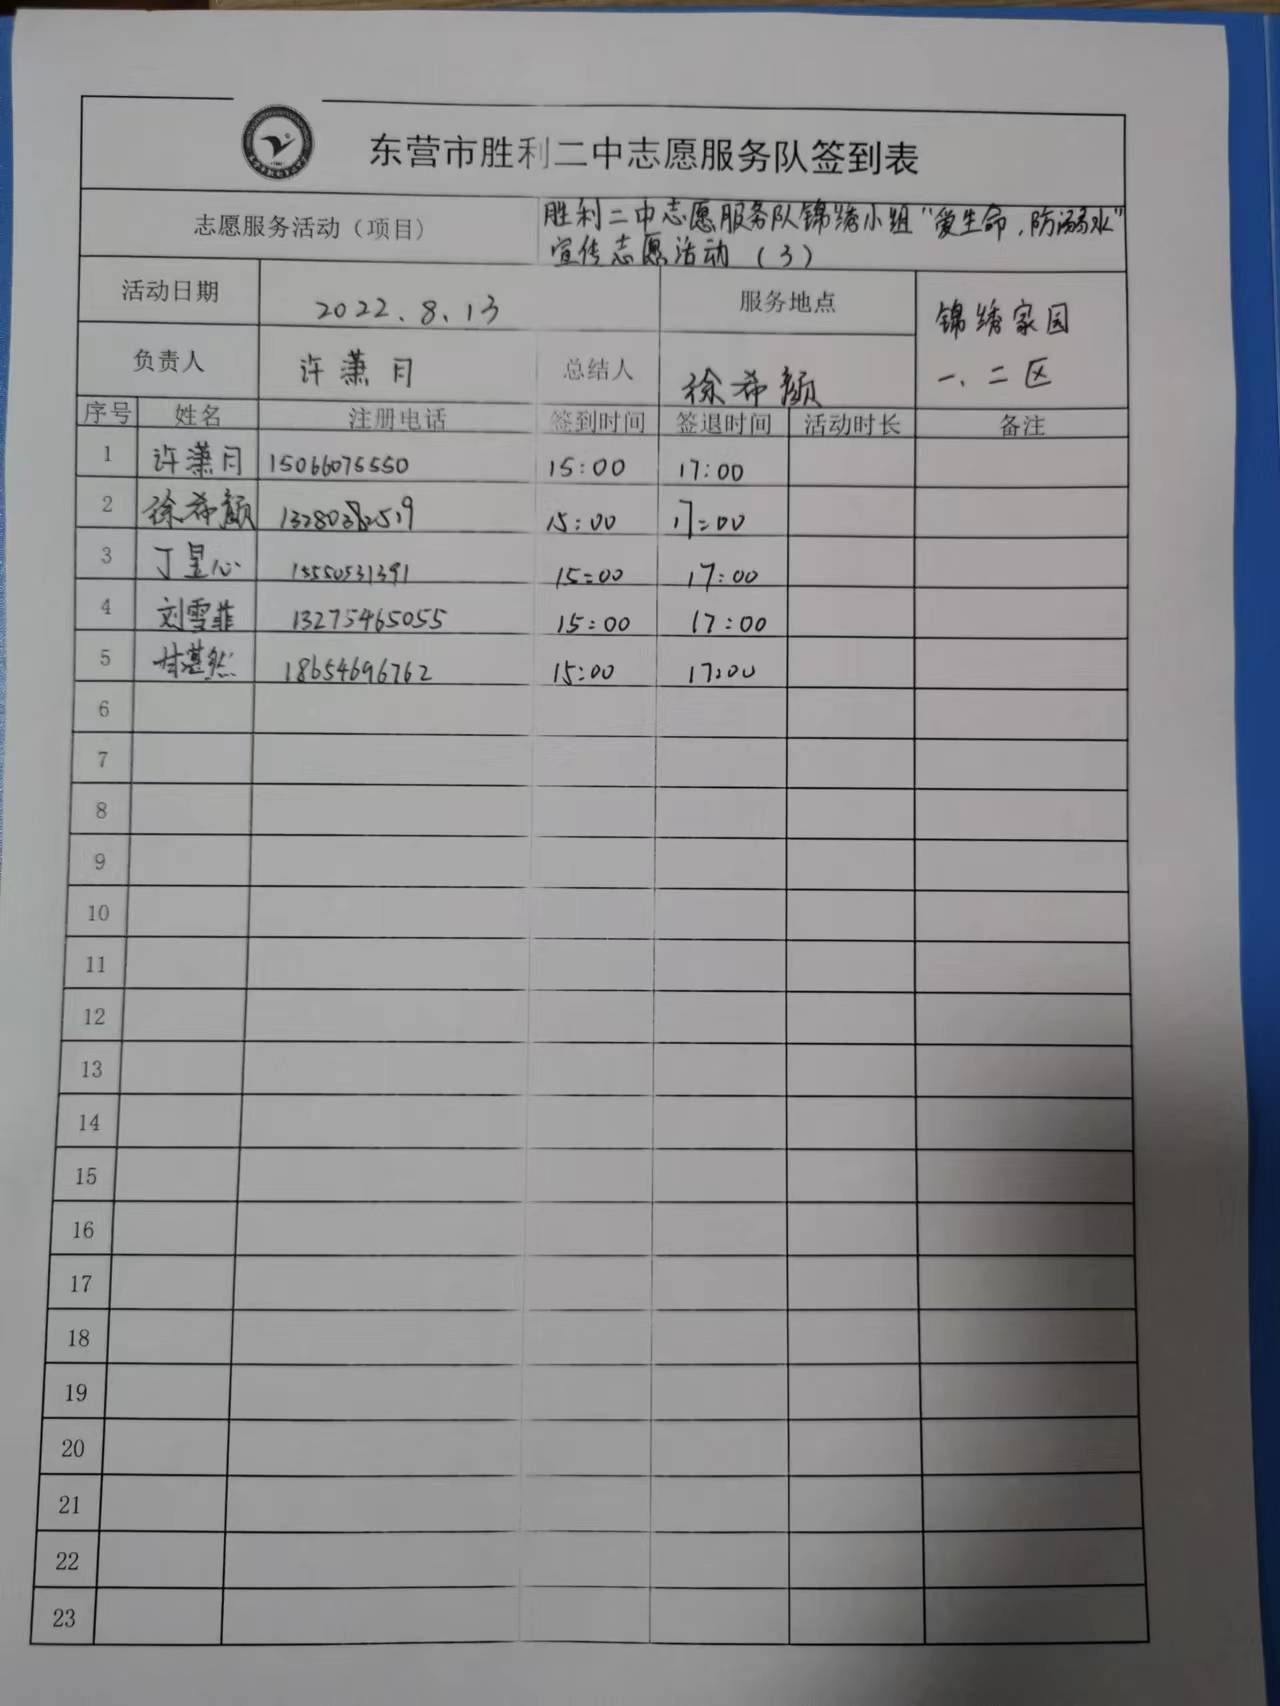 东营市胜利二中志愿服务队签到表
志愿服务活动（项目） 胜利二中志愿服务队锦绣小组“爱生命，防溺水”
宣传志愿活动（3）
活动日期 2022.8.13 服务地点 锦绣家园
负责人 许潇月 总结人 徐希颜 一、二区
序号 姓名 注册电话 签到时间 签退时间 活动时长 备注
1 许潇月 15066075550 15:00 17:00
2 徐希颜 15:00 17:00
3 丁昱心 15550531391 15:00 17:00
4 刘雪菲 13275465055 15:00 17:00
5 甘湛然 18654696762 15:00 17:00
6
7
8
9
10
11
12
13
14
15
16
17
18
19
20
21
22
23